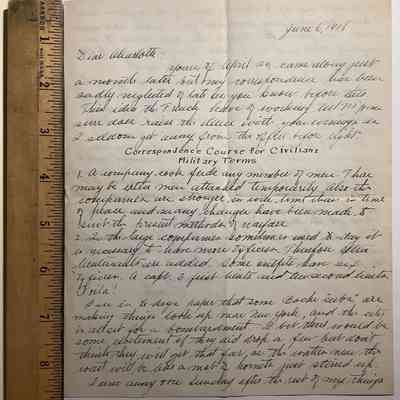 June 6, 1918
Dear Charlotte:
Yours of April 29 came along just
a month later but my correspondence has been
sadly neglected of late as you know before this.
This idea the French have of working
sure does raise the deuce with your evenings as
I seldom get away from the office before eight.
Correspondence Course For Civilians
Military Terms
1. A company cook feeds any number of men. There
may be extra men attached temporarily also the
companies are stronger in wartime than in time
of peace and many changes have been made to
suit the present methods of warfare.
2. In the large companies sometimes used to day it
is necessary to have more officers. Therefore extra
lieutenants are added. Some outfits have six
officers. A capt. 3 first lieuts and two second lieuts
Voila!
I see in to days paper that some Boche "subs" are
making things look up near New York, and the city
is all set for a bombardment. I bet there would be
some excitement if they did drop a few but dont
think they will get that far, as the water near the
coast will be like a nest of hornets just stirred up.
I was away one Sunday after the rest of my things